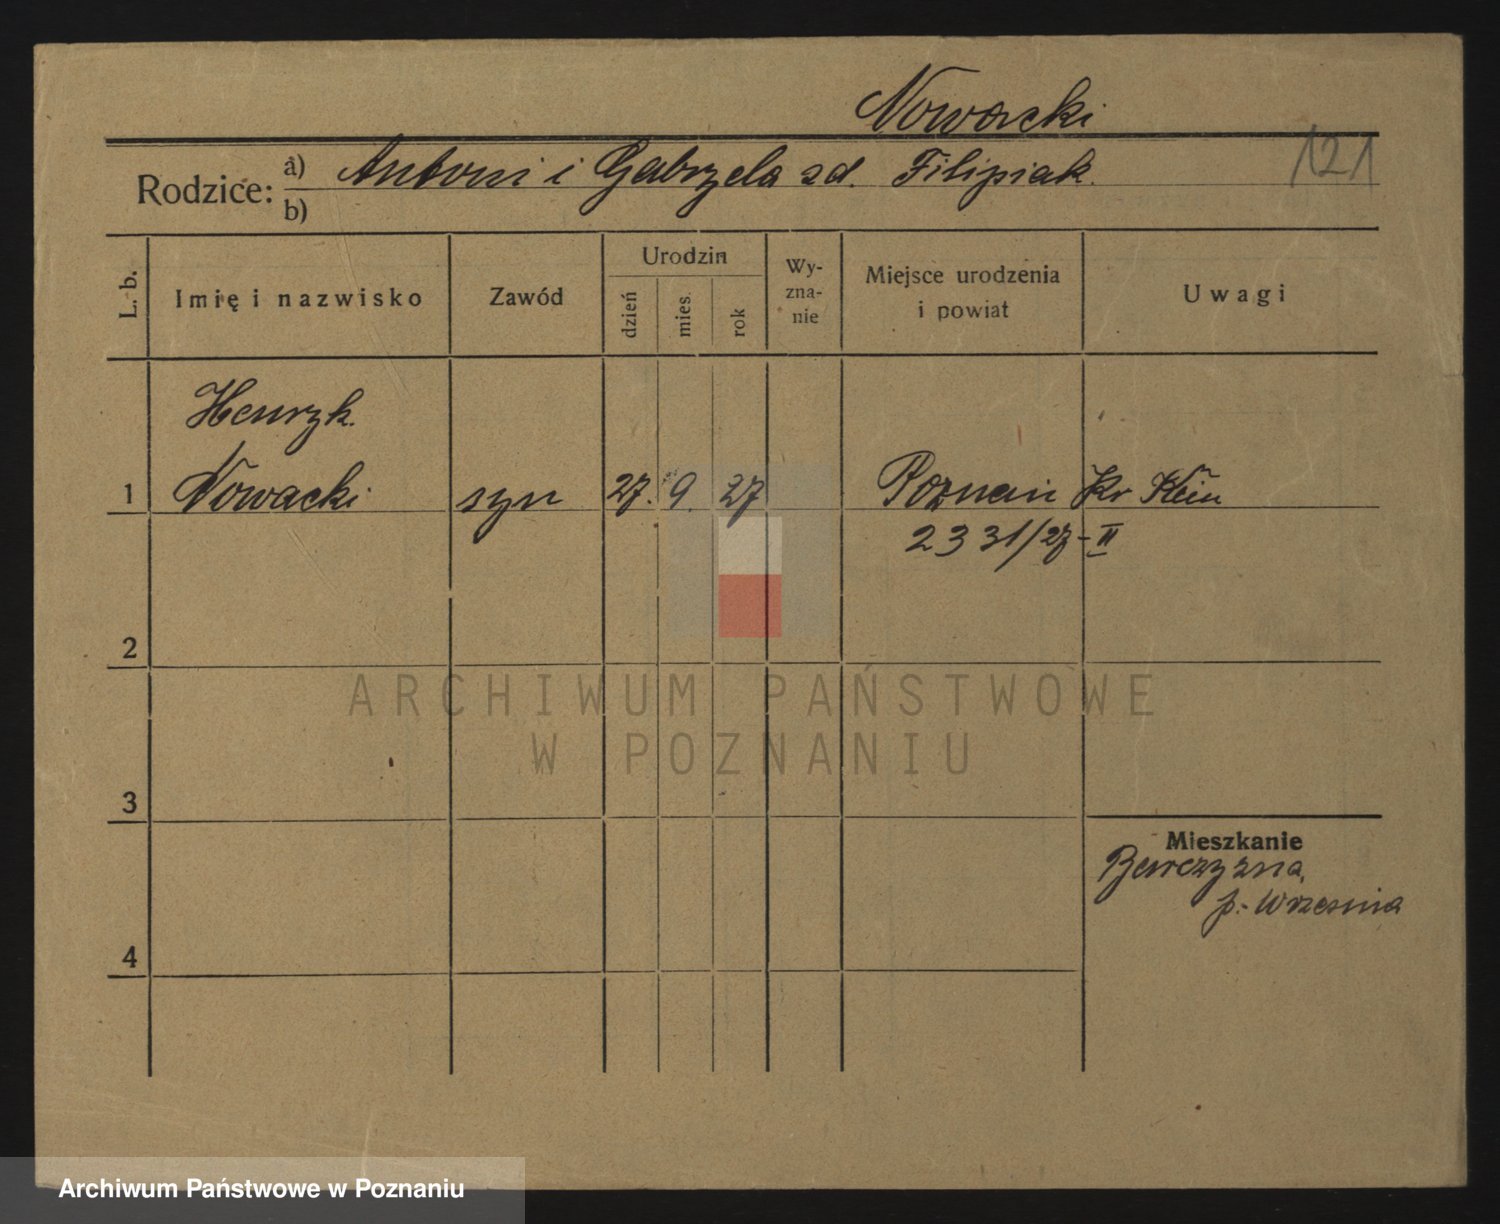 Nowacki
Rodzice: a) Antoni i Gabryela zd. Filipiak.
b)
121
L. b. Imię i nazwisko Zawód Urodzin dzień mies. rok Wy-zna-nie Miejsce urodzenia i powiat Uwagi
Henryk
1 Nowacki syn 27. 9. 27 Poznań Kr Klin
2331/27-II
2
ARCHIWUM PAŃSTWOWE
W POZNANIU
3
Mieszkanie
p. Września
4
Archiwum Państwowe w Poznaniu